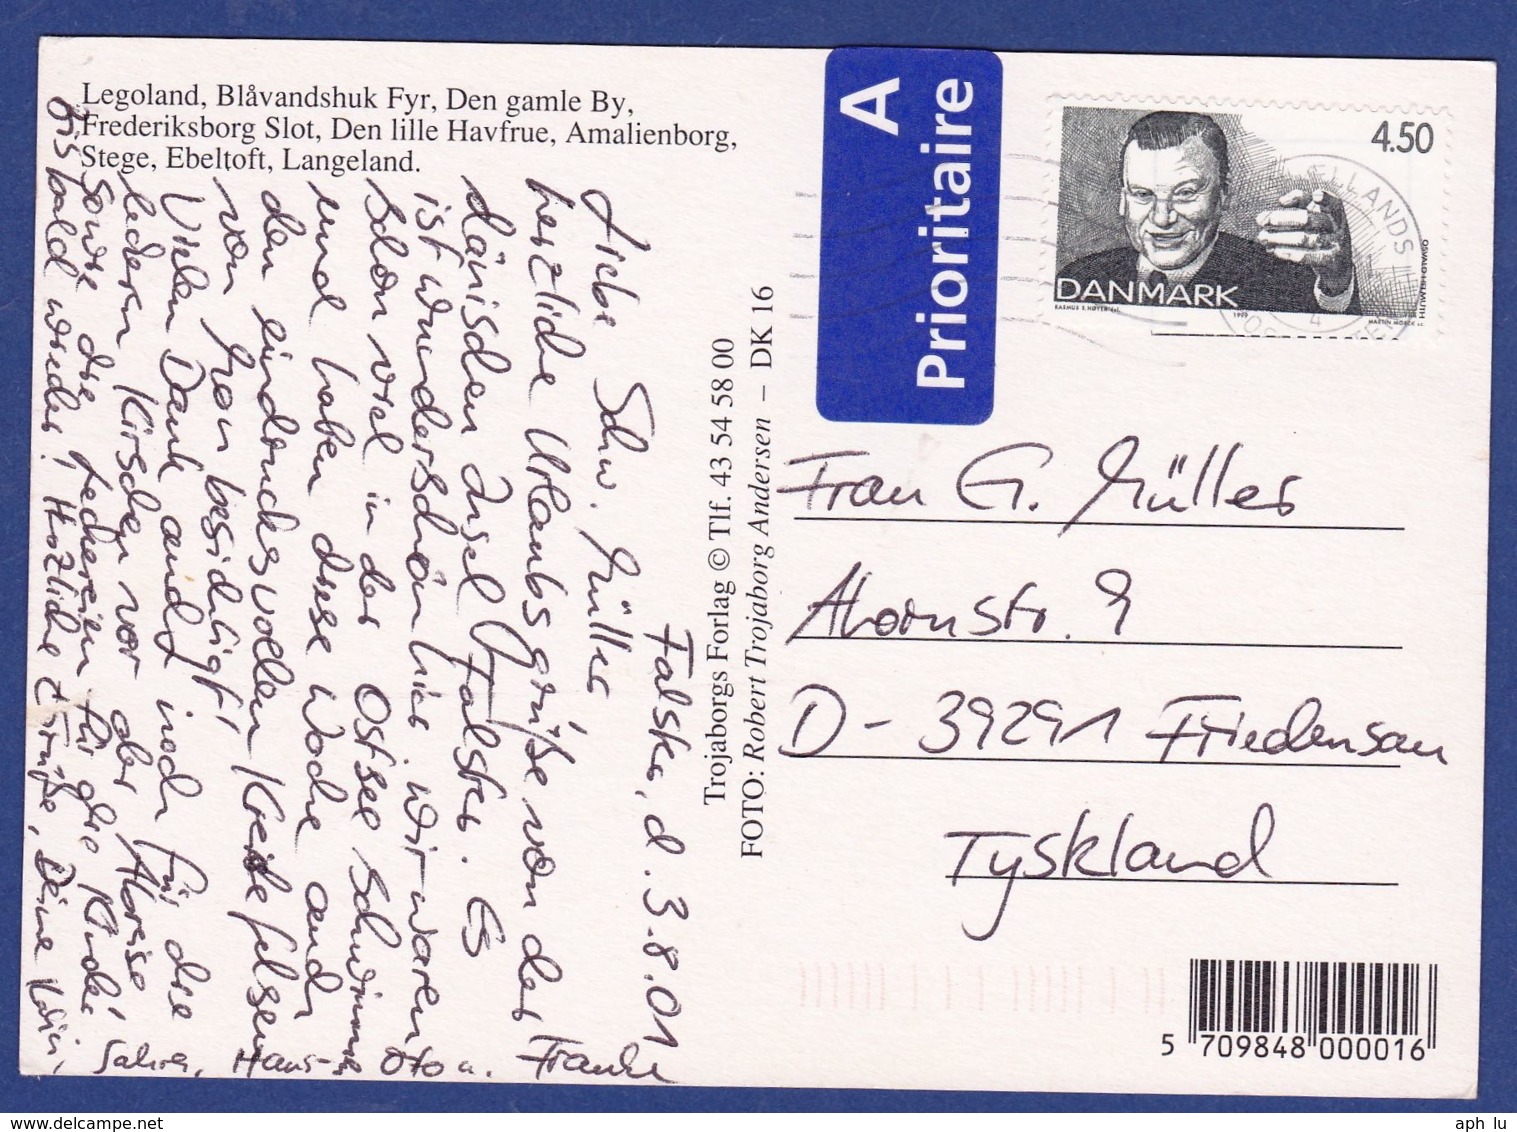 Legoland, Blåvandshuk Fyr, Den gamle By,
Frederiksborg Slot, Den lille Havfrue, Amalienborg,
Stege, Ebeltoft, Langeland.
Falster, d. 3.8.01
Liebe Schw. Müller
herzliche Urlaubsgrüße von der
dänischen Insel Falster. Es
ist wunderschön hier. Wir waren
schon viel in der Ostsee schwimmen
und haben diese Woche auch
den eindrucksvollen Kreidefelsen
von Møn besichtigt!
Vielen Dank auch noch für die
leckeren Kirschen vor der Abreise
sowie die Leckereien für die Kinder!
Bis bald wieder! Herzliche Grüße, Deine
Hans-Otto u. Frauke
Trojaborgs Forlag © Tlf. 43 54 58 00
FOTO: Robert Trojaborg Andersen – DK 16
A
Prioritaire
4.50
DANMARK
RASMUS F. HØYER del.
1999
MARTIN MÖRCK sc.
OSVALD HELMUTH
Frau G. Müller
Ahornstr. 9
D-39291 Friedensau
Tyskland
5 709848 000016
aph lu